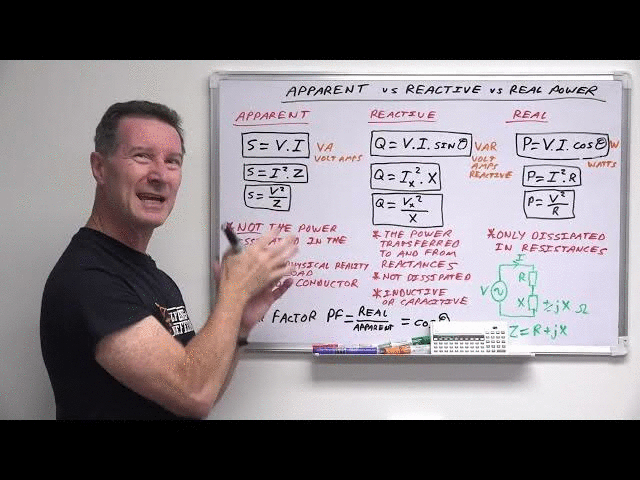 APPARENT vs REACTIVE vs REAL POWER
APPARENT
S = V.I
VA
VOLT AMPS
S = I².Z
S = V²/Z
* NOT THE POWER
IN THE
PHYSICAL REALITY
CONDUCTOR
REACTIVE
Q = V.I.sinθ
VAR
VOLT
AMPS
REACTIVE
Q = Iₓ².X
Q = Vₓ²/X
* THE POWER
TRANSFERRED
TO AND FROM
REACTANCES
* NOT DISSIPATED
* INDUCTIVE
OR CAPACITIVE
REAL
P = V.I.cosθ
W
WATTS
P = I².R
P = V²/R
* ONLY DISSIPATED
IN RESISTANCES
I
V
R
X
±jX Ω
Z = R + jX
FACTOR PF = REAL/APPARENT = cosθ